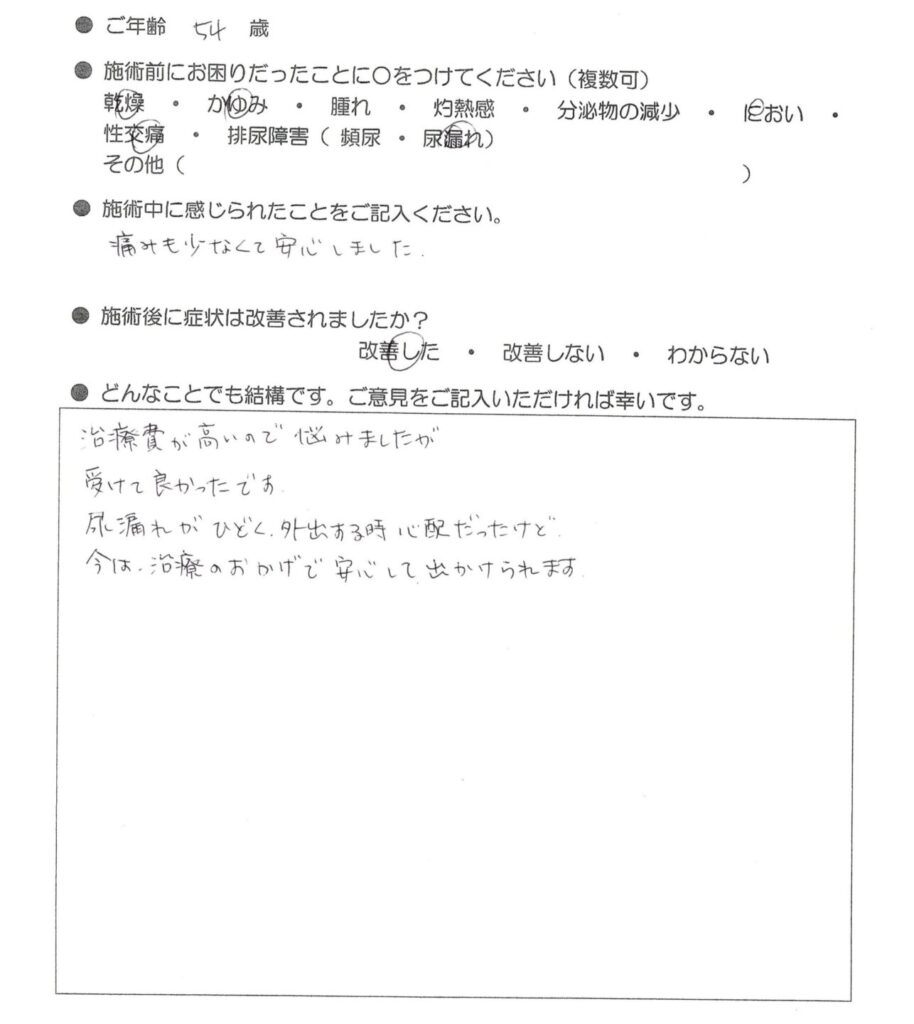 ● ご年齢 54 歳
● 施術前にお困りだったことに〇をつけてください(複数可)
乾燥 ・ かゆみ ・ 腫れ ・ 灼熱感 ・ 分泌物の減少 ・ におい ・
性交痛 ・ 排尿障害( 頻尿 ・ 尿漏れ)
その他( )
● 施術中に感じられたことをご記入ください。
痛みも少なくて安心しました.
● 施術後に症状は改善されましたか?
改善した ・ 改善しない ・ わからない
● どんなことでも結構です。ご意見をご記入いただければ幸いです。
治療費が高いので悩みましたが
受けて良かったです.
尿漏れがひどく.外出する時心配だったけど.
今は.治療のおかげで安心して出かけられます.